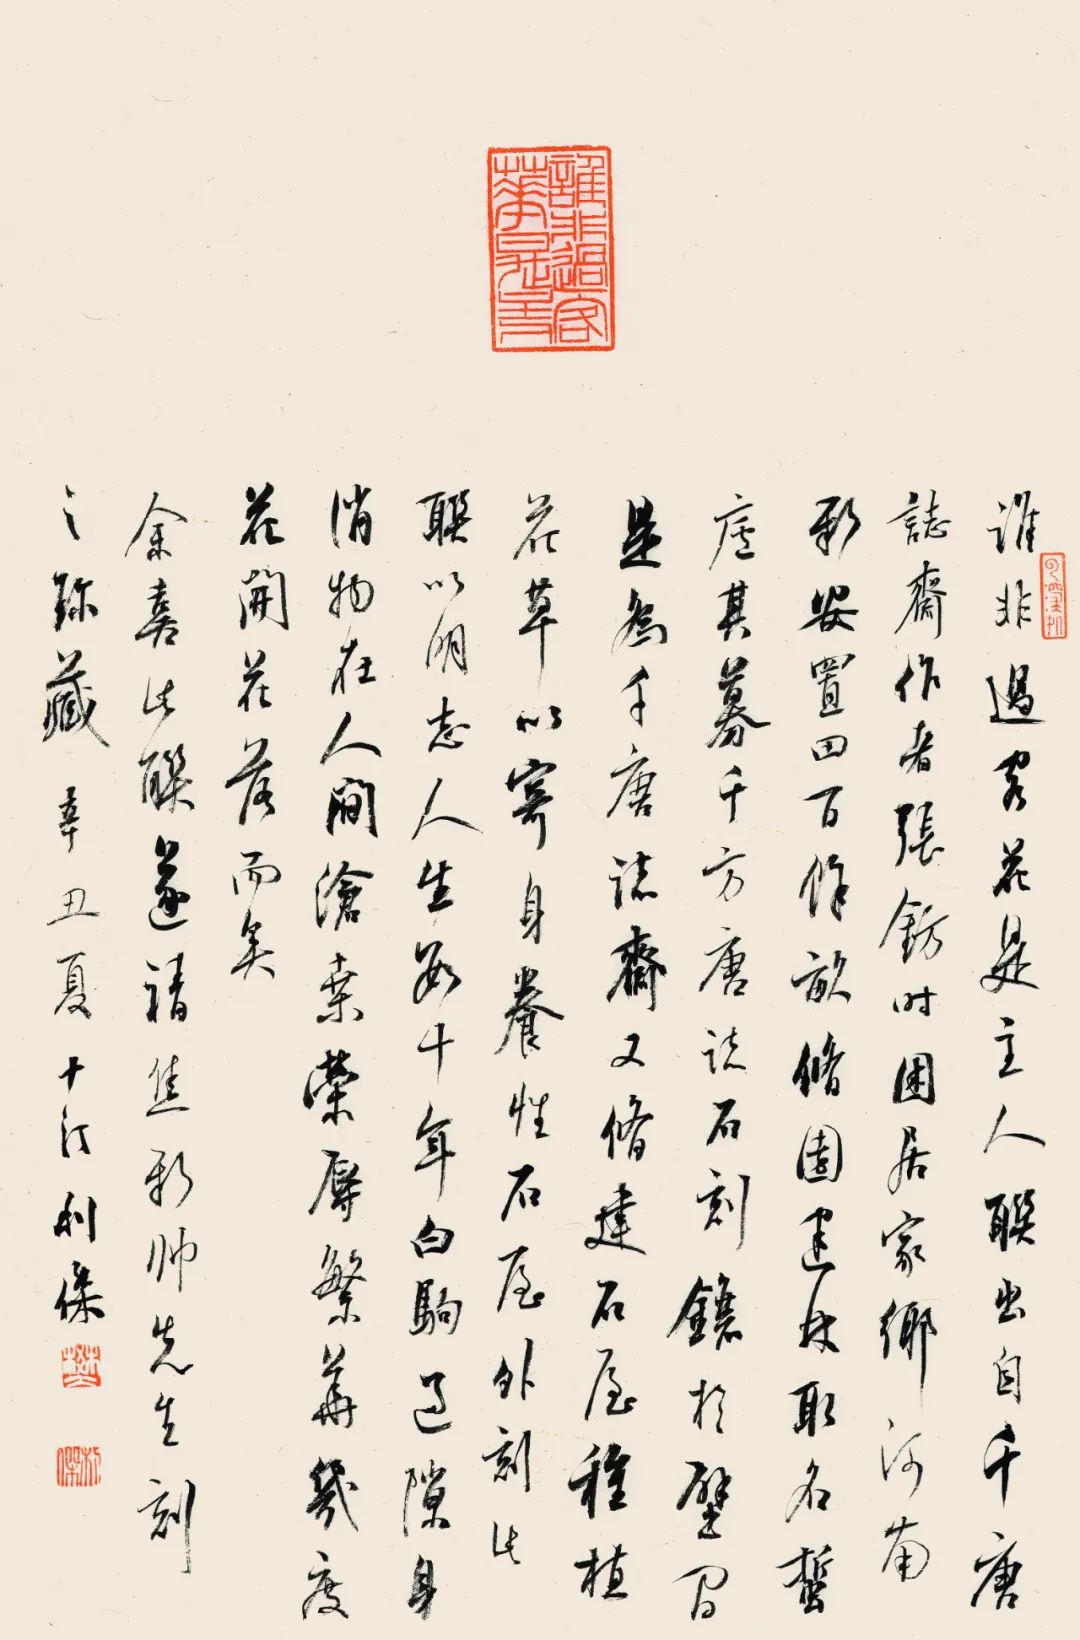 誰非過客
華是主人
誰非過客花是主人聯出自千唐
誌齋作者張鈁时困居家鄉河南
新安置田百餘畝脩園建林取名蟄
廬其募千方唐誌石刻鑲於壁間
是為千唐誌齋又脩建石屋種植
花草以寄身養性石屋外刻此
聯以明志人生數十年白駒過隙身
消物在人間滄桑榮辱繁華幾度
花開花落而矣
余喜此聯遂請焦新帥先生刻
之珎藏 辛丑夏 利傑